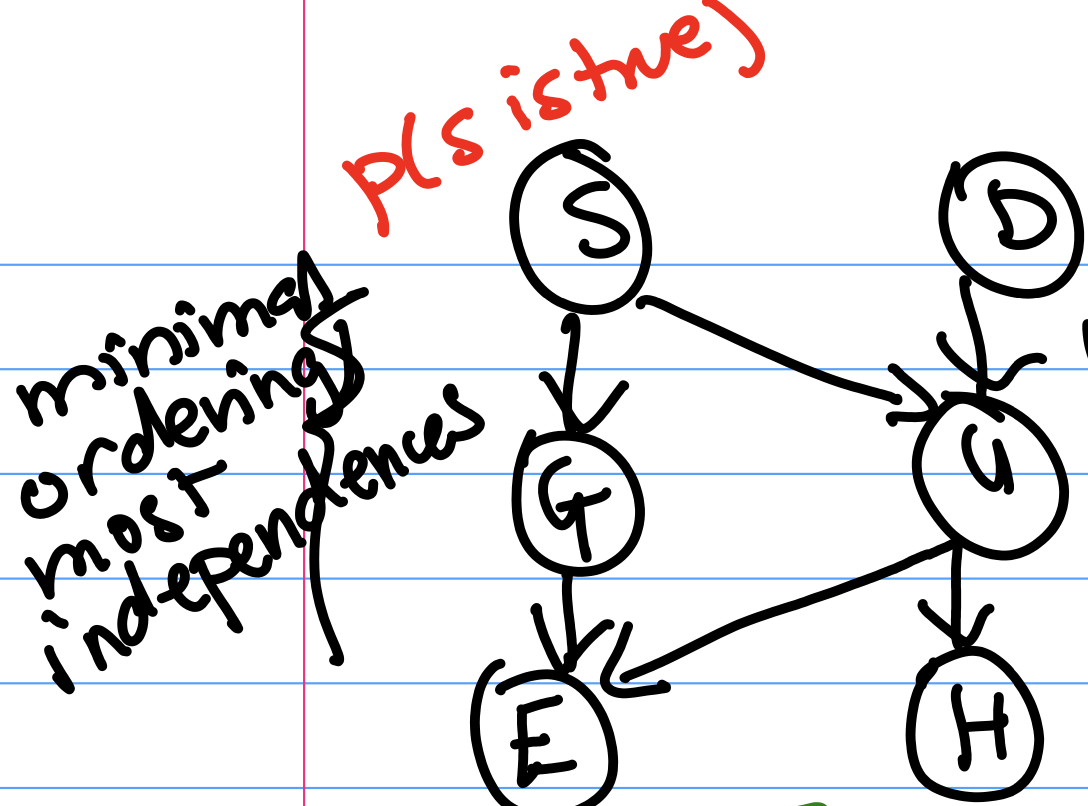 P(S is true)
S
D
minimal
ordering
most
independences
G
U
E
H